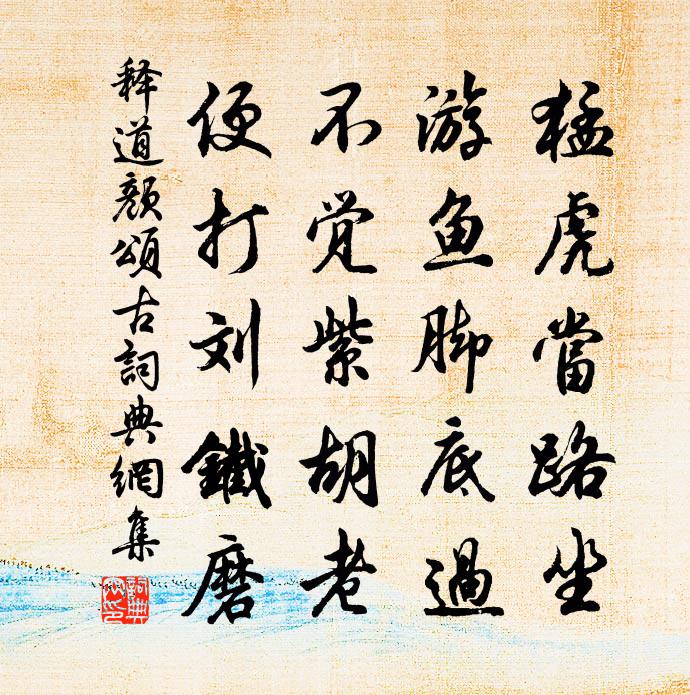 猛虎當路坐
游鱼脚底過
不觉紫胡老
便打刘鐵磨
释道颜頌古詞典網集